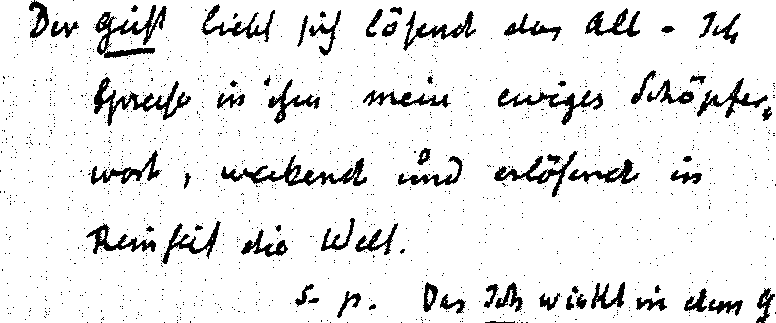 Der Geist liebt sich lösend das All - Ich
Spreche in ihm mein ewiges Schöpfer,
wort, webend und erlösend in
Reinheit die Welt.
s- p. Das Ich wirkt in dem G